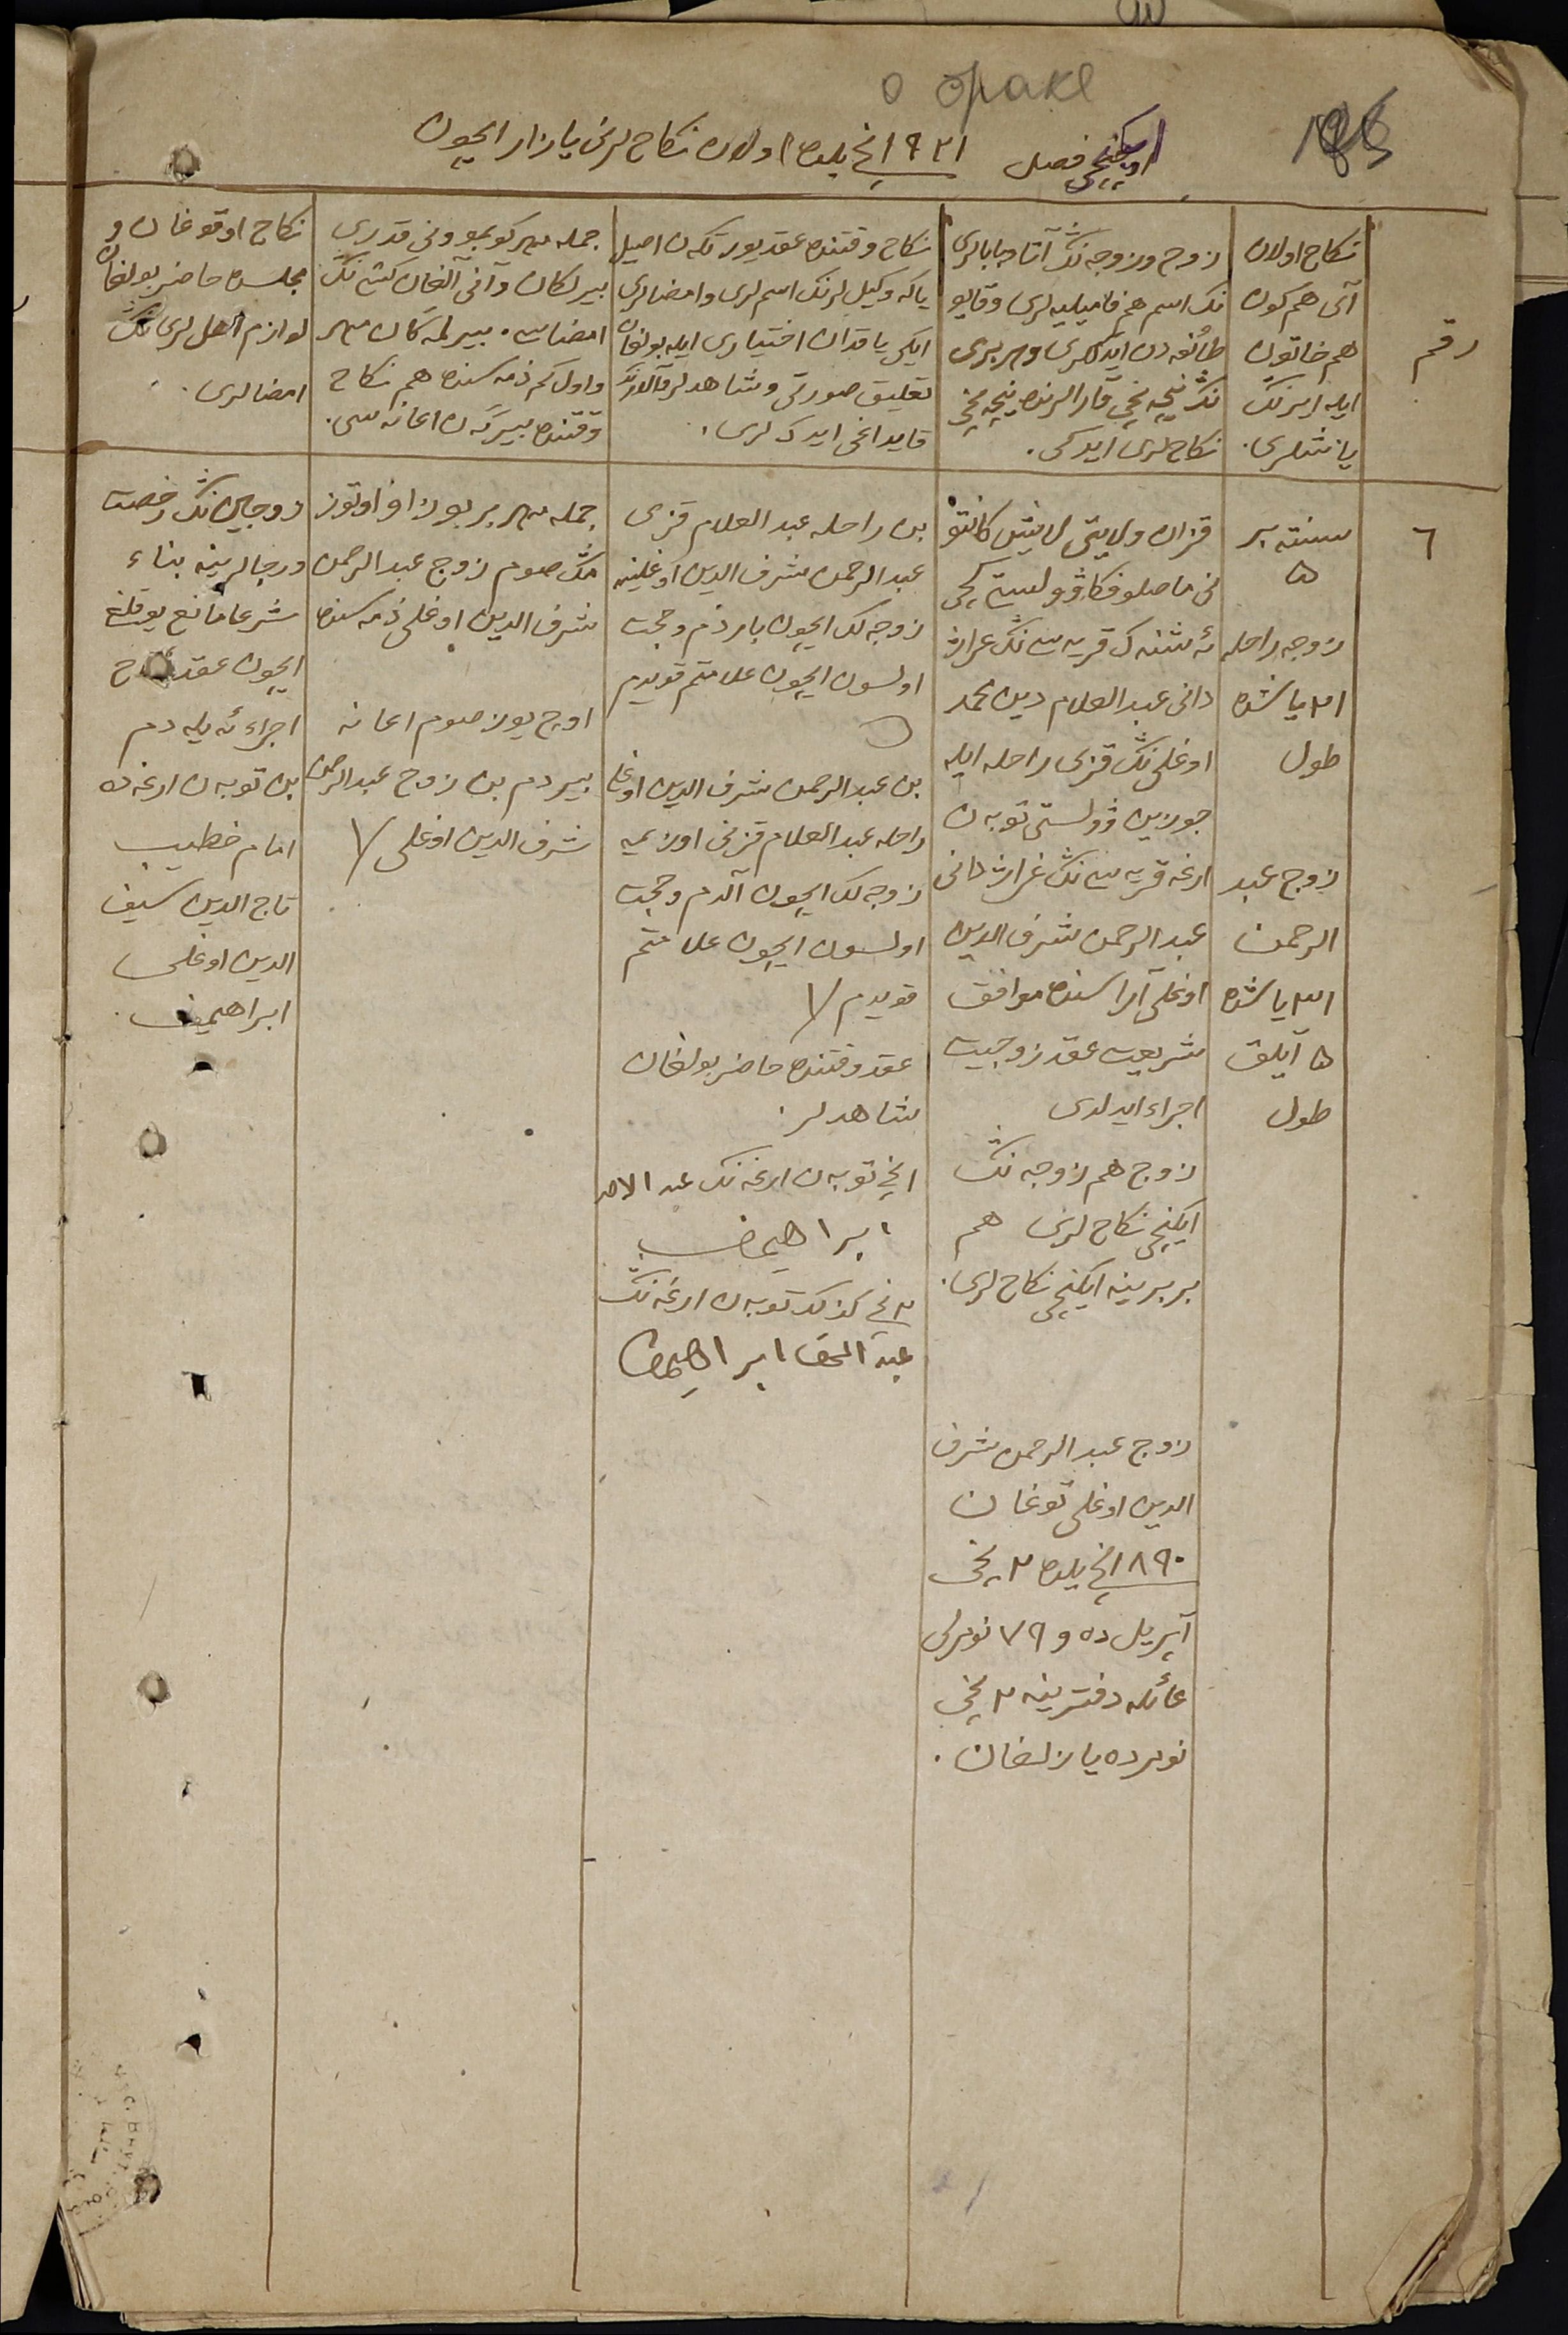 о браке
ايكنچی فصل ١٩٢١ نچی يلده اولان نكاح لرنی يازار ايچون
رقم
نكاح اولان
آی هم كون
هم خاتون
ايله ايرنڭ
ياشلری.
زوج وزوجه نڭ آتا وبابالری
نڭ اسم هم فاميليه لری وقايو
طائفه دن ايدكلری وهر بری
نڭ نيچه نچی قارالرنده نيچه نچی
نكاح لری ايدكی.
نكاح وقتنده عقد يورتكه ن اصيل
ياكه وكيل لرنڭ اسم لری وامضالری
ايكی ياقدان اختياری ايله بولغان
تعليق صورتی وشاهدلر
قايداغی ايدكلری.
جمله مهر كوبمو ونی قدری
بيرلكان وآنی آلغان كشی نڭ
امضاسی. بيرلمه كان مهر
واول كم ذمه سنده هم نكاح
وقتنده بيرگه ن اعانه سی.
نكاح اوقوغان و
مجلسده حاضر بولغان
لوازم اهل لری نڭ
امضالری.
٦
سنته بر
٥
زوجه راحله
ياشده
طول
زوج عبد
الرحمن
٣١ ياشده
٥ آيلق
طول
قزان ولايتی لايش كانتو
نی ماصلوفكا ڤولستی كچی
قريه سی نڭ
دانی عبد العلام دين محمد
اوغلی نڭ قزی راحله ايله
ڤولستی توبه ن
ارغه قريه سی نڭ غراژدانی
عبد الرحمن شرف الدين
اوغلی آراسنده موافق
شريعت عقد زوجيت
اجراء ايدلدی
زوج هم زوجه نڭ
ايكنچی نكاح لری هم
بر برينه ايكنچی نكاح لری.
زوج عبد الرحمن شرف
الدين اوغلی توغان
١٨٩٠ نچی يلده ٢ نچی
آپريل ده و ٧٩ نومرلی
عائله دفترينه ٢ نچی
نومرده يازلغان.
بن راحله عبد العلام قزی
عبد الرحمن شرف الدين اوغلينه
زوجه لك ايچون باردم وحجت
اولسون ايچون علامتم قويدم
بن عبد الرحمن شرف الدين اوغلی
راحله عبد العلام قزنی اوزيمه
زوجه لك ايچون آلدم وحجت
اولسون ايچون علامتم
قويدم
عقد وقتنده حاضر بولغان
شاهدلر.
١نچی توبه ن ارغه نڭ عبد الاحد
ابراهيموف
٢ نچی توبه ن ارغه نڭ
عبد الحق ابراهيموف
جمله مهر بر يوز اوتوز
مڭ صوم زوج عبد الرحمن
شرف الدين اوغلی ذمه سنده
اوچ يوز صوم اعانه
بيردم بن زوج عبد الرحمن
شرف الدين اوغلی
زوجين نڭ رخصت
ورجالرينه بناء
شرعا مانع يوقلغی
ايچون عقد نكاح
اجراء ئه يله دم
بن توبه ن ارغه ده
امام خطيب
تاج الدين سيف
الدين اوغلی
ابراهيموف.